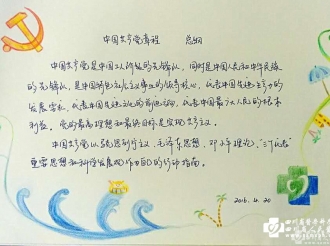 中国共产党章程 总纲
中国共产党是中国工人阶级的先锋队，同时是中国人民和中华民族
的先锋队，是中国特色社会主义事业的领导核心，代表中国先进生产力的
发展要求，代表中国先进文化的前进方向，代表中国最广大人民的根本
利益。党的最高理想和最终目标是实现共产主义。
中国共产党以马克思列宁主义、毛泽东思想、邓小平理论、“三个代表”
重要思想和科学发展观作为自己的行动指南。
2016.4.20